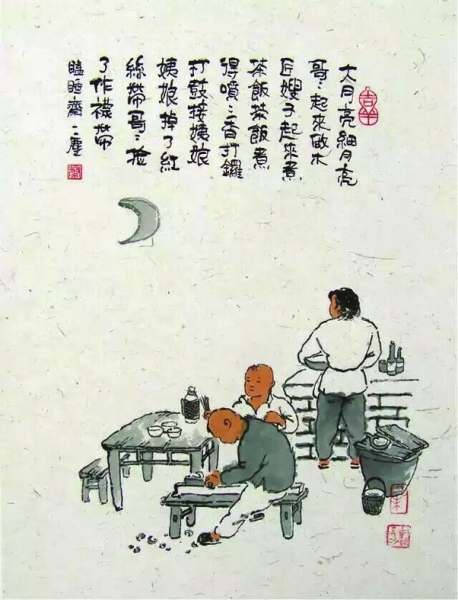 大月亮細月亮
哥〻起來做木
匠嫂子起來煮
茶飯茶飯煮
得噴〻香打鑼
打鼓接姨娘
姨娘掉了紅
絲帶哥〻撿
了作襪帶
瞌睡齋二塵
吉羊